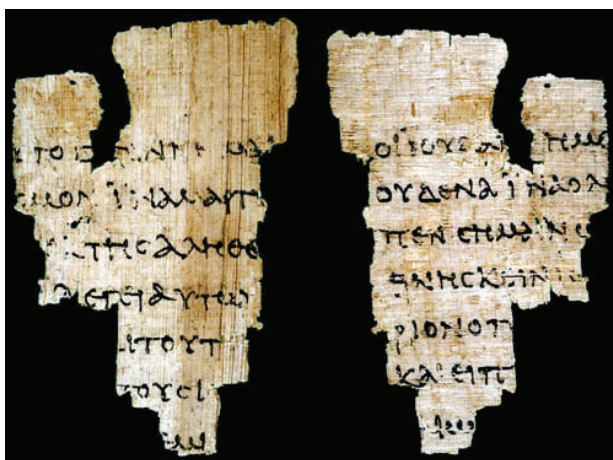 ΥΤΟ
ϹΜΟΝ ΪΝΑ ΜΑΡΤΥ
ΤΗϹ ΑΛΗΘΕ
ΛΕΓΕΙ ΑΥΤΩ
ΤΟΥΤ
ΤΟΥϹ Ι
ΟΙ ΪΟΥΔΑΙ ΗΜΕ
ΟΥΔΕΝΑ ΪΝΑ Ο Λ
ΠΕΝ ϹΗΜΑΙΝΩ
ΘΝΗϹΚΕΙΝ
ΡΙΟΝ Ο Π
ΚΑΙ ΕΙΠ